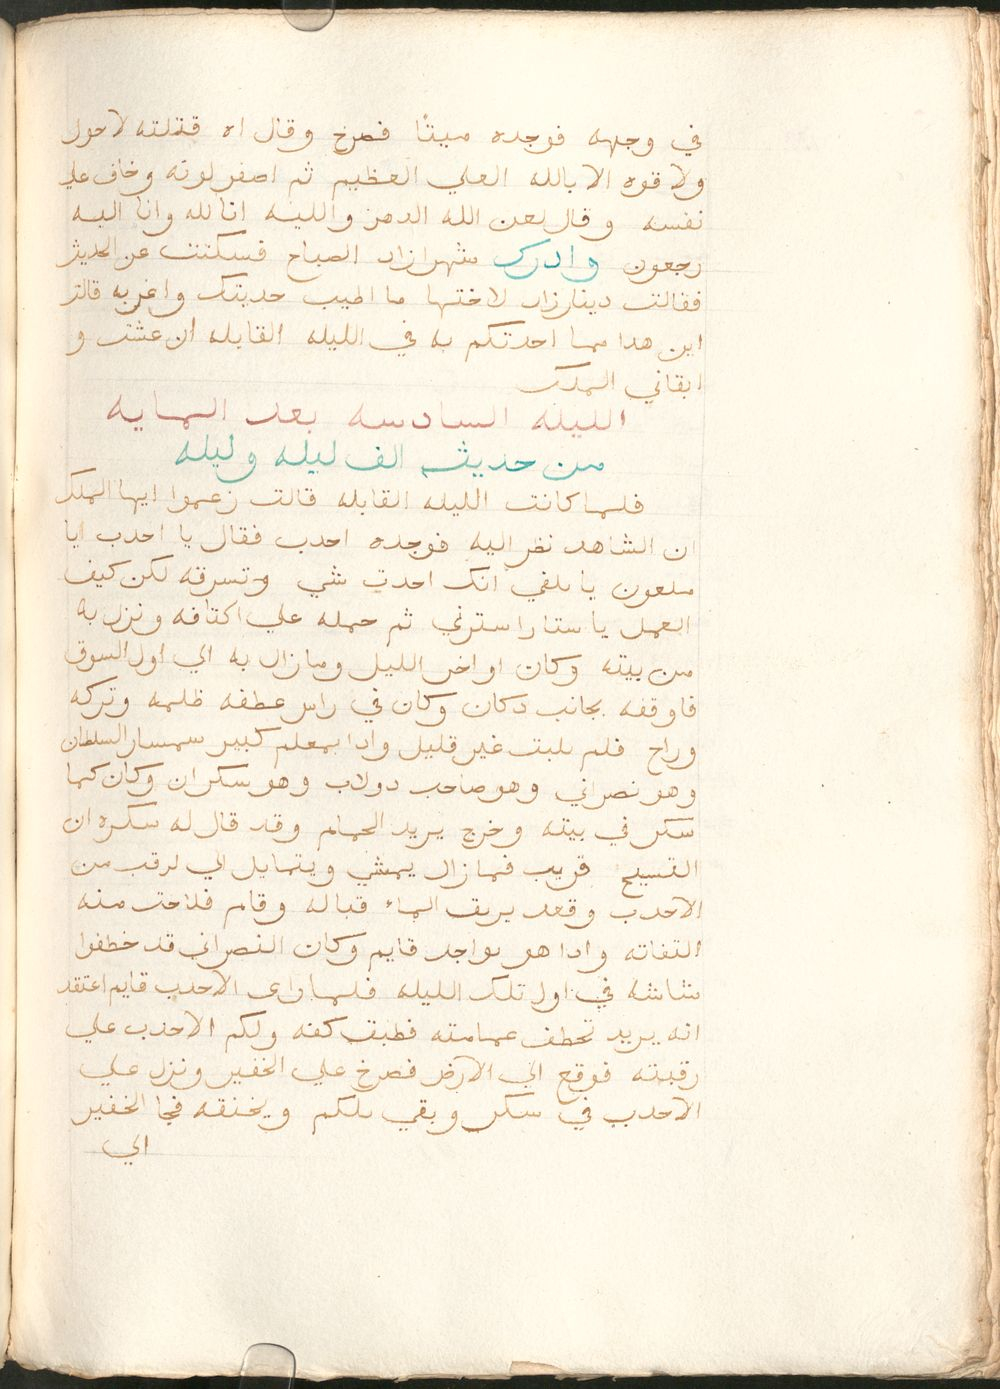 في وجهه فوجده ميتًا فصرخ وقال اه قتلته لاحول
ولا قوه الا بالله العلي العظيم ثم اصفر لونه وخاف علي
نفسه وقال لعن الله الدهن والليه انا لله وانا اليه
رجعون وادرك شهرازاد الصباح فسكتت عن الحديث
فقالت دينارزاد لاختها ما اطيب حديتك واغربه قالت
اين هدا مما احدتكم به في الليله القابله ان عشت و
ابقاني الملك
الليله السادسه بعد المايه
من حديث الف ليله وليله
فلما كانت الليله القابله قالت زعموا ايها الملك
ان الشاهد نظر اليه فوجده احدب فقال يا احدب ايا
ملعون يا يكفي انك احدب شي وتسرقه لكن كيف
العمل يا ستار استرني ثم حمله علي اكتافه ونزل به
من بيته وكان اواخر الليل ومازال به الي اول السوق
فاوقفه بجانب دكان وكان في راس عطفه ظلمه وتركه
وراح فلم يلبت غير قليل وادا بمعلم كبير سمسار السلطان
وهو نصراني وهو صاحب دولاب وهو سكران وكان كما
سكر في بيته وخرج يريد الحمام وقد قال له سكره ان
التسبيح قريب فمازال يمشي ويتمايل الي ان قرب من
الاحدب وقعد يريق الماء قباله وقام فلاحت منه
التفاته وادا هو بواحد قايم وكان النصراني قد خطفوا
شاشه في اول تلك الليله فلما راي الاحدب قايم اعتقد
انه يريد تخطف عمامته فطبق كفه ولكم الاحدب علي
رقبته فوقع الي الارض فصرخ علي الخفير ونزل علي
الاحدب في سكر وبقي يلكم ويخنقه فجا الخفير
الي